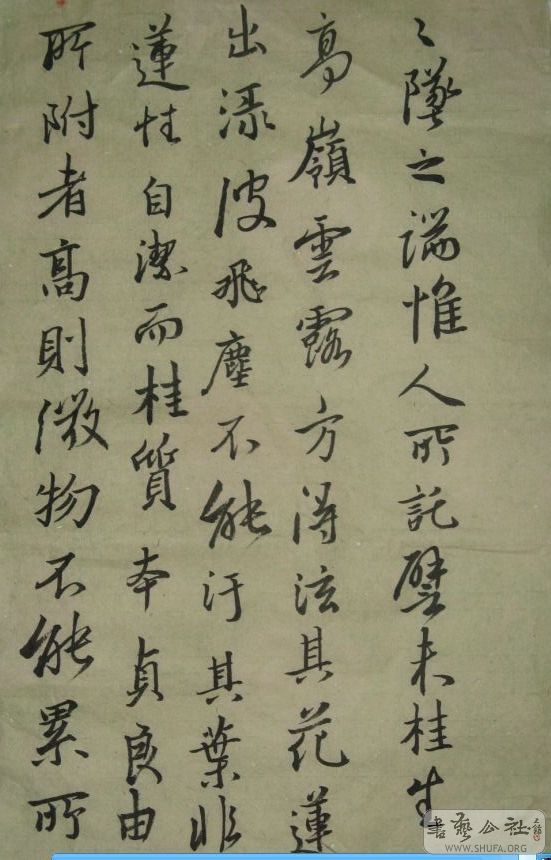 〻墜之端惟人所託譬未桂生
高嶺雲露方得泫其花蓮
出淥波飛塵不能汙其葉非
蓮性自潔而桂質本貞良由
所附者高則微物不能累所
書藝公社
WWW.SHUFA.ORG